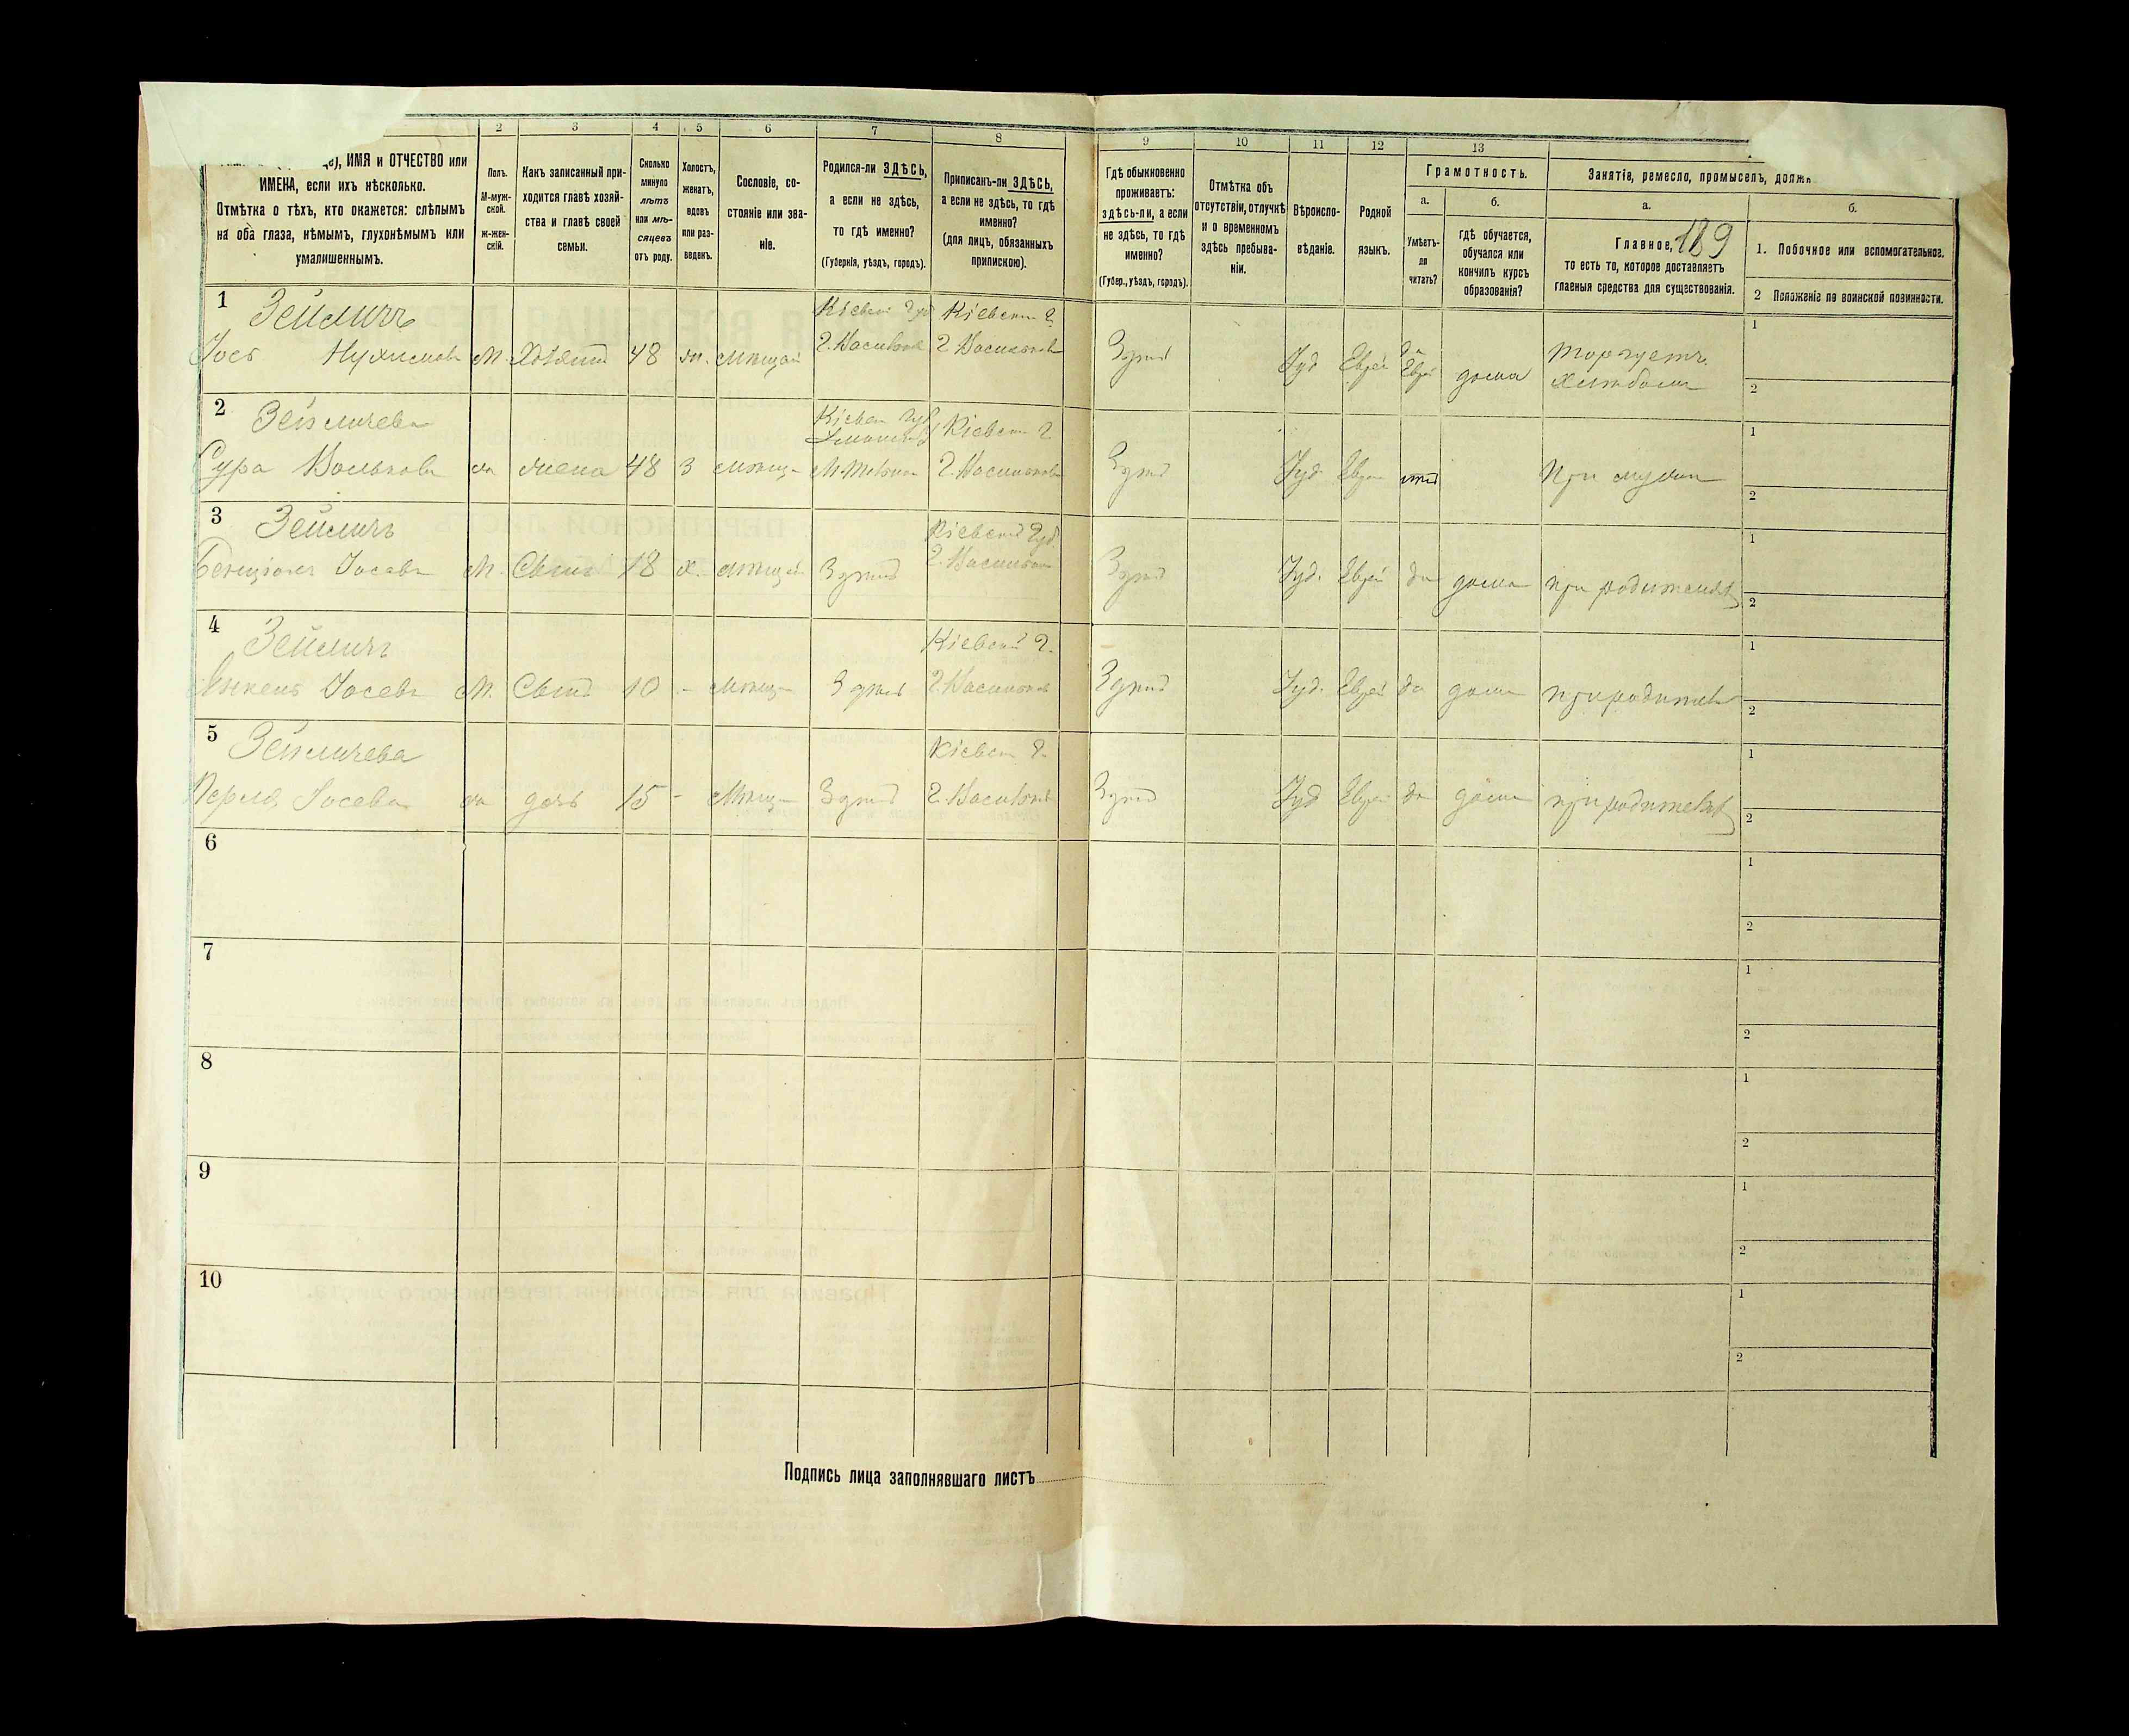 2 3 4 5 6 7 8 9 10 11 12 13
ИМЯ и ОТЧЕСТВО или
ИМЕНА, если ихъ нѣсколько.
Отмѣтка о тѣхъ, кто окажется: слѣпымъ
на оба глаза, нѣмымъ, глухонѣмымъ или
умалишеннымъ.
Полъ.
М-муж-
ской.
Ж-жен-
скій.
Какъ записанный при-
ходится главѣ хозяй-
ства и главѣ своей
семьи.
Сколько
минуло
лѣтъ
или мѣ-
сяцевъ
отъ роду.
Холостъ,
женатъ,
вдовъ
или раз-
веденъ.
Сословіе, со-
стояніе или зва-
ніе.
Родился-ли ЗДѢСЬ,
а если не здѣсь,
то гдѣ именно?
(Губернія, уѣздъ, городъ).
Приписанъ-ли ЗДѢСЬ,
а если не здѣсь, то гдѣ
именно?
(для лицъ, обязанныхъ
припискою).
Гдѣ обыкновенно
проживаетъ:
здѣсь-ли, а если
не здѣсь, то гдѣ
именно?
(Губер., уѣздъ, городъ).
Отмѣтка объ
отсутствіи, отлучкѣ
и о временномъ
здѣсь пребыва-
ніи.
Вѣроиспо-
вѣданіе.
Родной
языкъ.
Грамотность.
а.
Умѣетъ-
ли
читать?
б.
гдѣ обучается,
обучался или
кончилъ курсъ
образованія?
Занятіе, ремесло, промыселъ,
а.
Главное, 189
то есть то, которое доставляетъ
главныя средства для существованія.
б.
1. Побочное или вспомогательное.
2 Положеніе по воинской повинности.
1 Зейличъ Кіевск Губ Кіевск г. 1
Іось М. 48 г. Васильков г. Васильков Іуд Еврей да дома торгуетъ 2
2 Зейличева Кіевск Губ Кіевск г. 1
Сура Волькова жена 48 З г. Васильков Іуд Еврей при мужи 2
3 Зейличъ Кіевской Губ. 1
Бенціонъ Іосевъ М. Сынъ 18 х. г. Васильков Іуд. Еврей да дома при родителях 2
4 Зейличъ Кіевской г. 1
Іосевъ М. Сынъ 10 - г. Васильков Іуд. Еврей да дома при родителях 2
5 Зейличева Кіевск г. 1
Перля Іосева дочь 15 - г. Васильков Іуд Еврей да дома при родителях 2
6 1
2
7 1
2
8 1
2
9 1
2
10 1
2
Подпись лица заполнявшаго листъ